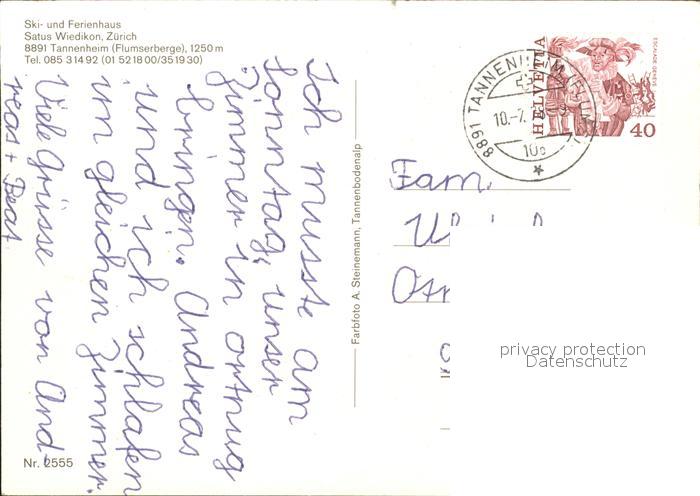 Ski- und Ferienhaus
Satus Wiedikon, Zürich
8891 Tannenheim (Flumserberge), 1250 m
Tel. 085 3 14 92 (01 52 18 00/35 19 30)
Ich musste am
Sonntag, unser
Zimmer in ortnug
bringen. Andreas
und ich schlafen
im gleichen Zimmer.
Viele Grüsse von And,
reas + Beat
Nr. 2555
Farbfoto A. Steinemann, Tannenbodenalp
8891 TANNENHEIM (FLUMS
10.-7.
108
HELVETIA
ESCALADE GENÈVE
40
Fam.
privacy protection
Datenschutz